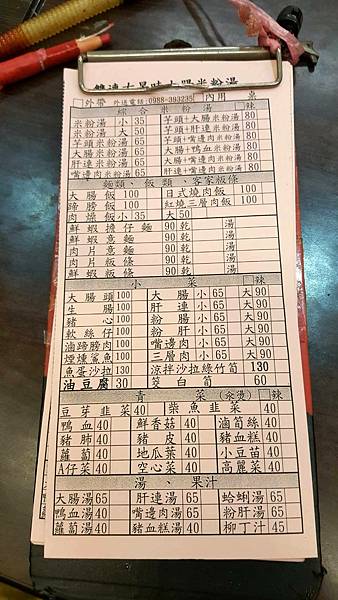 雙連古早味大腸米粉湯
□外帶 外送電話:0988-393235 □內用 桌
綜合米粉湯 □辣
米粉湯 小 35 芋頭+大腸米粉湯 80
米粉湯 大 50 芋頭+肝連米粉湯 80
芋頭米粉湯 65 芋頭+嘴邊肉米粉湯 80
大腸米粉湯 65 大腸+鴨血米粉湯 80
肝連米粉湯 65 大腸+嘴邊肉米粉湯 80
嘴邊肉米粉湯 65 肝連+嘴邊肉米粉湯 80
麵類、飯類、客家粄條
大腸飯 100 日式燒肉飯 100
蹄膀飯 100 紅燒三層肉飯 100
肉燥飯 小 35 大 50
鮮蝦擔仔麵 90 乾 湯
鮮蝦意麵 90 乾 湯
肉片意麵 90 乾 湯
肉片粄條 90 乾 湯
鮮蝦粄條 90 乾 湯
小菜 □辣
大腸頭 100 大腸 小 65 大 90
生腸 100 肝連 小 65 大 90
豬心 100 粉腸 小 65 大 90
軟絲仔 100 粉肝 小 65 大 90
滷蹄膀肉 100 嘴邊肉 小 65 大 90
煙燻鯊魚 100 三層肉 小 65 大 90
魚蛋沙拉 130 涼拌沙拉綠竹筍 130
油豆腐 30 茭白筍 60
青菜(汆燙) □辣
豆芽韭菜 40 柴魚韭菜 40
鴨血 40 鮮香菇 40 滷筍絲 40
豬肺 40 豬皮 40 豬血糕 40
蘿蔔 40 地瓜葉 40 小豆苗 40
A仔菜 40 空心菜 40 高麗菜 40
湯、果汁
大腸湯 65 肝連湯 65 蛤蜊湯 65
鴨血湯 40 嘴邊肉湯 65 粉肝湯 65
蘿蔔湯 40 豬血糕湯 40 柳丁汁 45